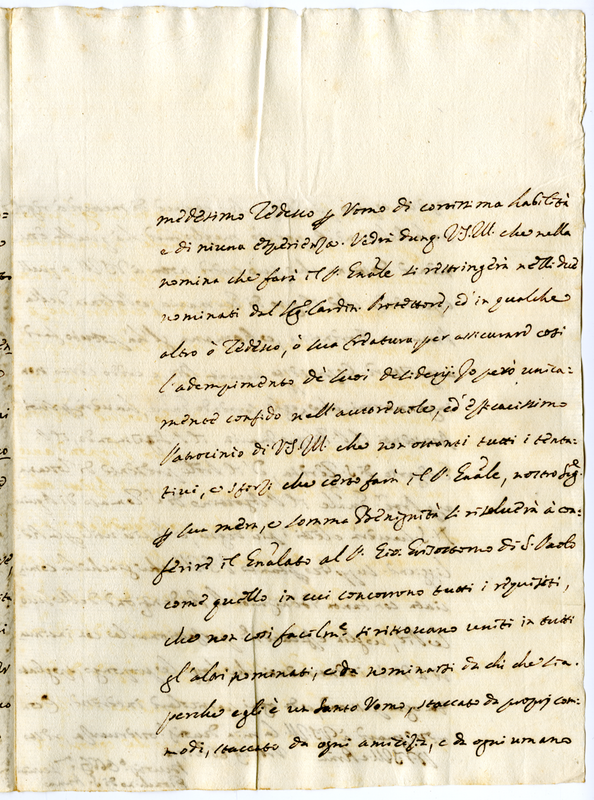 medesimo Tedesco p Uomo di cortissima habilità
e di niuna esperienza. Vedrà dunq. V.S.Ill. che nella
nomina che farà il P. Gnãle si restringerà nelli due
nominati dal Sig. Cardin. Protettore, ed in qualche
altro ò Tedesco, ò sua Creatura, per assicurare così
l'adempimento de' suoi desiderij. Io però unica-
mente confido nell'autorevole, ed efficacissimo
Patrocinio di V.S.Ill. che non ostanti tutti i tenta-
tivi, e sforzi che certo farà il P. Gnãle, nostro Sig.e
p sua mera, e somma Benignità si risolverà à con-
ferire il Gnãlato al P. Gio. Grisostomo di S. Paolo
come quello in cui concorrono tutti i requisiti,
che non così facilm.e si ritrovano uniti in tutti
gl'altri nominati, e da nominarsi da chi che sia.
perche egli è un santo Uomo, staccato da proprj com-
modi, staccato da ogni amicizia, e da ogni umano